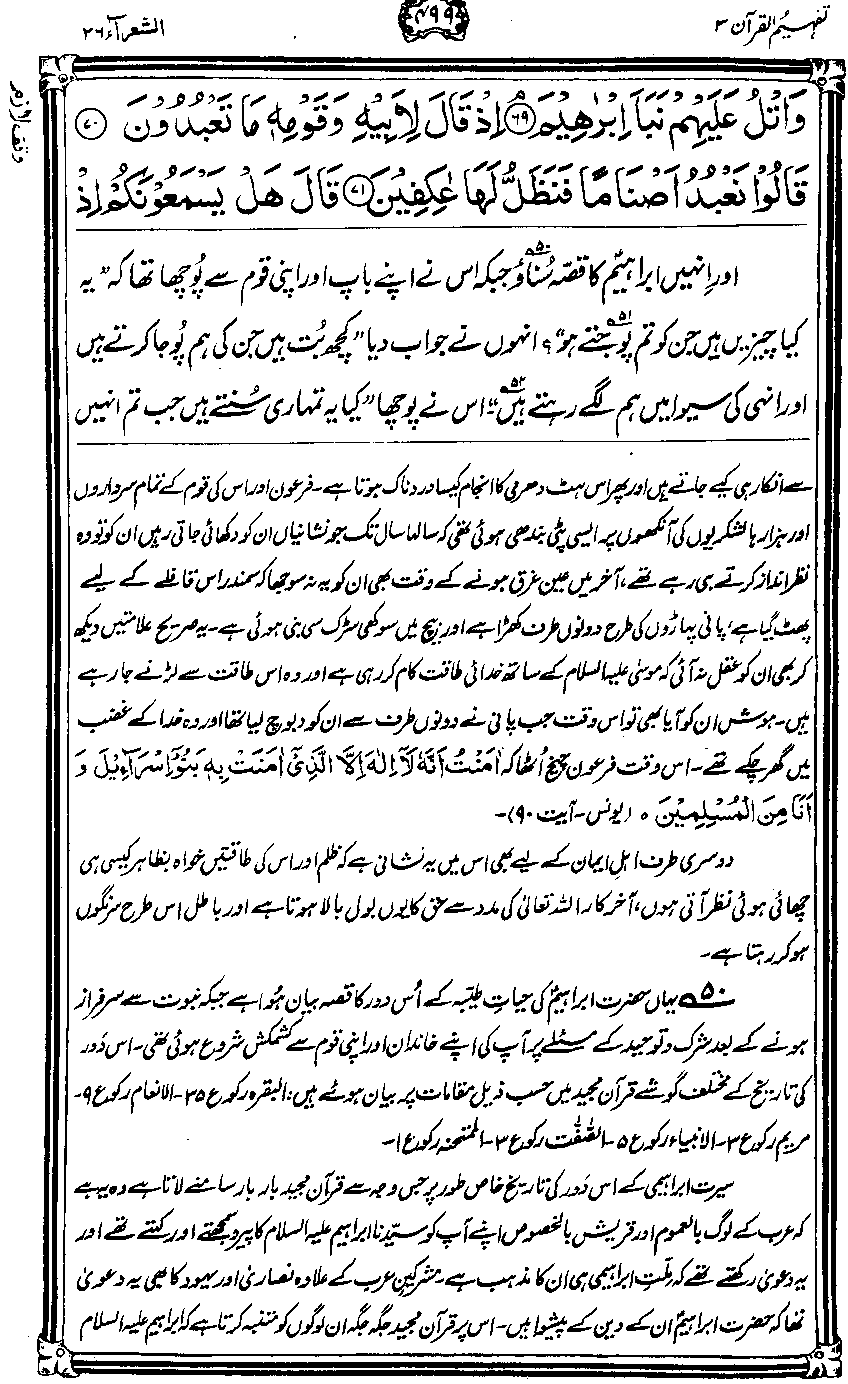 تفہیم القرآن ۳
۴۹۹
الشعرآء ۲۶
وقف لازم
وَاتْلُ عَلَيْهِمْ نَبَاَ اِبْرٰهِيْمَ ۘ﴿۶۹﴾ اِذْ قَالَ لِاَبِيْهِ وَقَوْمِهٖ مَا تَعْبُدُوْنَ ﴿۷۰﴾
قَالُوْا نَعْبُدُ اَصْنَامًا فَنَظَلُّ لَهَا عٰكِفِيْنَ ﴿۷۱﴾ قَالَ هَلْ يَسْمَعُوْنَكُمْ اِذْ
اور اِنہیں ابراہیمؑ کا قصّہ سُناؤ۵۰ جبکہ اس نے اپنے باپ اور اپنی قوم سے پُوچھا تھا کہ ”یہ
کیا چیزیں ہیں جن کو تم پُوجتے ہو“؟۵۱ انہوں نے جواب دیا ”کچھ بُت ہیں جن کی ہم پُوجا کرتے ہیں
اور انہی کی سیوا میں ہم لگے رہتے ہیں“۵۲۔ اس نے پوچھا ”کیا یہ تمہاری سُنتے ہیں جب تم انہیں
سے انکار ہی کیے جاتے ہیں اور پھر اس ہٹ دھرمی کا انجام کیسا دردناک ہوتا ہے۔ فرعون اور اس کی قوم کے تمام سرداروں
اور ہزارہا لشکریوں کی آنکھوں پر ایسی پٹی بندھی ہوئی تھی کہ سالہا سال تک جو نشانیاں ان کو دکھائی جاتی رہیں ان کو تو وہ
نظر انداز کرتے ہی رہے تھے، آخر میں عین غرق ہونے کے وقت بھی ان کو یہ نہ سوجھا کہ سمندر اس قافلے کے لیے
پھٹ گیا ہے، پانی پہاڑوں کی طرح دونوں طرف کھڑا ہے اور بیچ میں سوکھی سڑک سی بنی ہوئی ہے۔ یہ صریح علامتیں دیکھ
کر بھی ان کو عقل نہ آئی کہ موسیٰ علیہ السلام کے ساتھ خدائی طاقت کام کر رہی ہے اور وہ اس طاقت سے لڑنے جا رہے
ہیں۔ ہوش ان کو آیا بھی تو اس وقت جب پانی نے دونوں طرف سے ان کو دبوچ لیا تھا اور وہ خدا کے غضب
میں گھر چکے تھے۔ اس وقت فرعون چیخ اُٹھا کہ اٰمَنْتُ اَنَّهٗ لَآ اِلٰهَ اِلَّا الَّذِيْٓ اٰمَنَتْ بِهٖ بَنُوْٓا اِسْرَآءِيْلَ وَ
اَنَا مِنَ الْمُسْلِمِيْنَ ۵ (یونس۔ آیت ۹۰)۔
دوسری طرف اہلِ ایمان کے لیے بھی اس میں یہ نشانی ہے کہ ظلم اور اس کی طاقتیں خواہ بظاہر کیسی ہی
چھائی ہوئی نظر آتی ہوں، آخر کار اللہ تعالیٰ کی مدد سے حق کا یوں بول بالا ہوتا ہے اور باطل اس طرح سرنگوں
ہو کر رہتا ہے۔
۵۰ یہاں حضرت ابراہیمؑ کی حیاتِ طیّبہ کے اُس دور کا قصہ بیان ہُوا ہے جبکہ نبوت سے سرفراز
ہونے کے بعد شرک و توحید کے مسئلے پر آپ کی اپنے خاندان اور اپنی قوم سے کشمکش شروع ہوئی تھی۔ اس دَور
کی تاریخ کے مختلف گوشے قرآن مجید میں حسب ذیل مقامات پر بیان ہوئے ہیں: البقرہ رکوع ۳۵۔ الانعام رکوع ۹۔
مریم رکوع ۳۔ الانبیاء رکوع ۵۔ الصّٰفّٰت رکوع ۳۔ الممتحنہ رکوع ۱۔
سیرت ابراہیمی کے اس دَور کی تاریخ خاص طور پر جس وجہ سے قرآن مجید بار بار سامنے لاتا ہے وہ یہ ہے
کہ عرب کے لوگ بالعموم اور قریش بالخصوص اپنے آپ کو سیّدنا ابراہیم علیہ السلام کا پیرو سمجھتے اور کہتے تھے اور
یہ دعویٰ رکھتے تھے کہ ملّتِ ابراہیمی ہی ان کا مذہب ہے۔ مشرکینِ عرب کے علاوہ نصاریٰ اور یہود کا بھی یہ دعویٰ
تھا کہ حضرت ابراہیمؑ ان کے دین کے پیشوا ہیں۔ اس پر قرآن مجید جگہ جگہ ان لوگوں کو متنبہ کرتا ہے کہ ابراہیم علیہ السلام